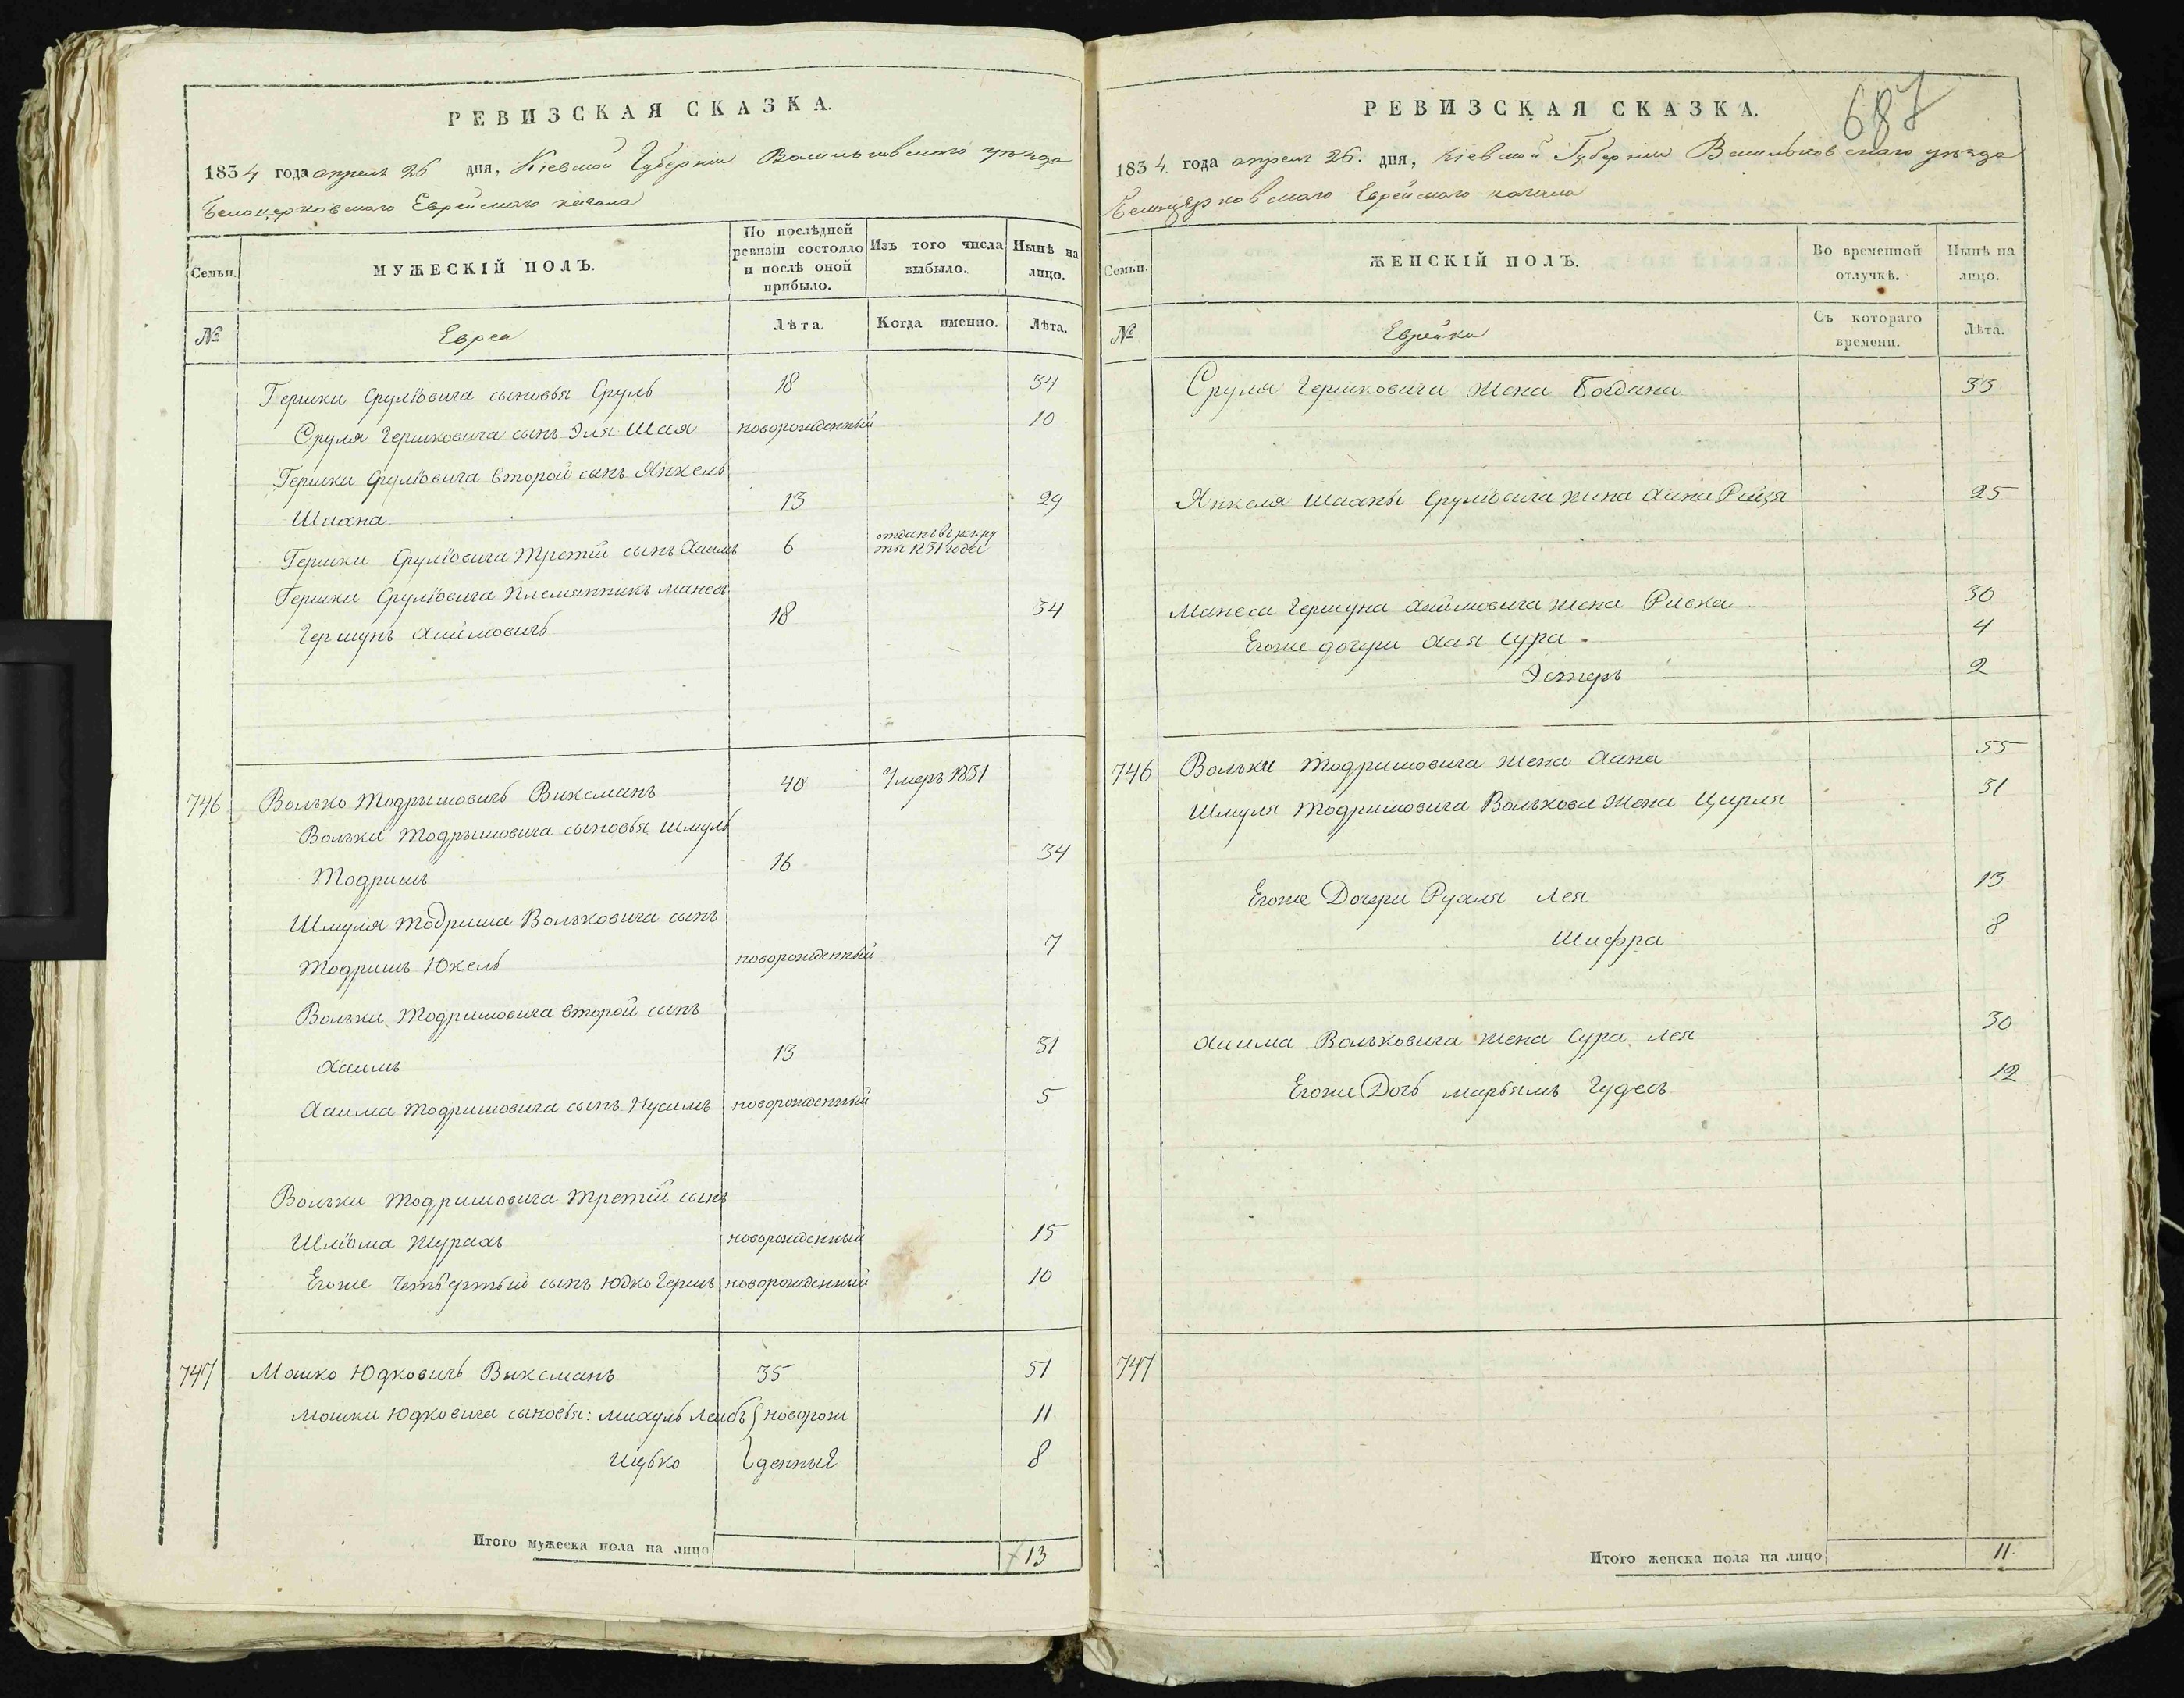 РЕВИЗСКАЯ СКАЗКА.
1834 года апреля 26 дня, Кіевской Губерніи Васильковскаго уезда
Белоцерковскаго Еврейскаго кагала
Семьи.
МУЖЕСКІЙ ПОЛЪ.
По послѣдней ревизіи состояло и послѣ оной прибыло.
Изъ того числа выбыло.
Нынѣ на лицо.
№
Евреи
Лѣта.
Когда именно.
Лѣта.
Гершки Срулiовича сыновья Сруль 18 34
Сруля Гершковича сынъ Эля Шая новорожденный 10
Гершки Срулiовича второй сынъ Янкель
Шахна 13 29
Гершки Срулiовича третiй сынъ Хаимъ 6 отданъ в рекру
ты 1831 года
Гершки Срулiовича племянникъ Манесъ
Гершунъ Хаимовичъ 18 34
746 Волько Тодрышовичъ Виксманъ 40 Умеръ 1831
Вольки Тодрышовича сыновья Шмуль
Тодришъ 16 34
Шмуля Тодриша Вольковича сынъ
Тодришъ Юкель новорожденный 7
Вольки Тодришовича второй сынъ
Хаимъ 13 31
Хаима Тодришовича сынъ Нусимъ новорожденный 5
Вольки Тодришовича третiй сынъ
Шлiома новорожденный 15
Егоже Четвертый сынъ Юдко Гершъ новорожденный 10
747 Мошко Юдковичъ Виксманъ 35 51
Мошки Юдковича сыновья: Михуль Лейбъ новорож 11
Ицько денные 8
Итого мужеска пола на лицо 13
687
РЕВИЗСКАЯ СКАЗКА.
1834 года апреля 26. дня, Кіевской Губерніи Васильковскаго уезда
Белоцерковскаго Еврейскаго кагала
Семьи.
ЖЕНСКІЙ ПОЛЪ.
Во временной отлучкѣ.
Нынѣ на лицо.
№
Еврейки
Съ котораго времени.
Лѣта.
Сруля Гершковича жена Богдана 33
Янкеля Шахны Срулiовича жена Хана Рейзя 25
Манеса Гершуна Хаимовича жена Ривка 30
Егоже дочери Хая Сура 4
Эстеръ 2
746 Вольки Тодришовича жена Хана 55
Шмуля Тодришовича Волькови жена Цирля 31
Егоже Дочери Рухля Лея 13
Шифра 8
Хаима Вольковича жена Сура Лея 30
Егоже Дочь Марьямъ Гудесъ 12
747
Итого женска пола на лицо 11.